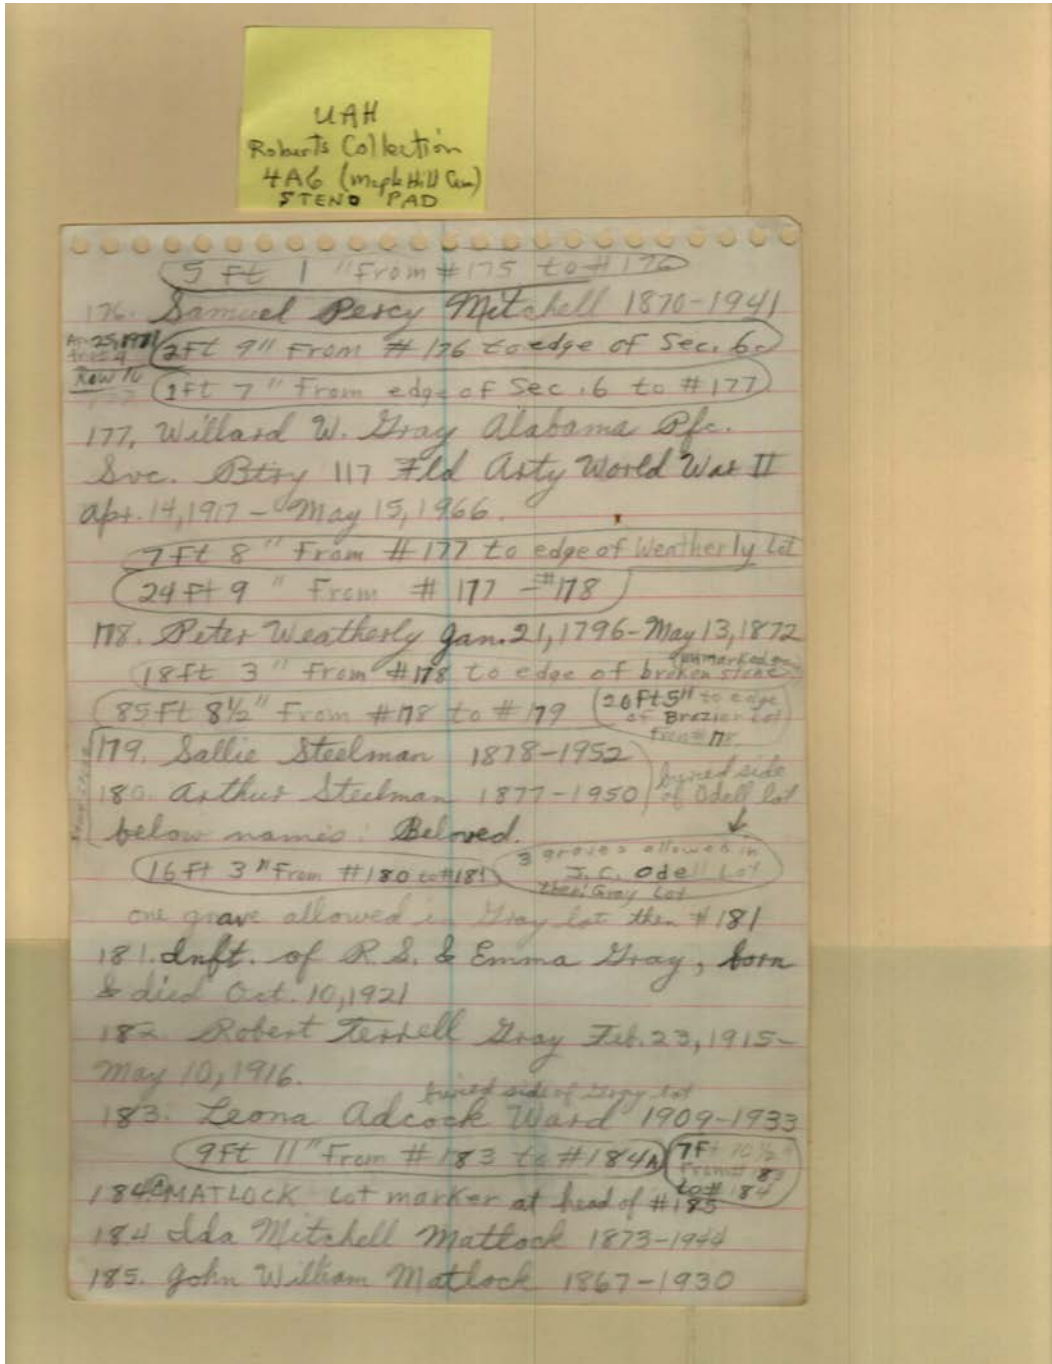 UAH
Roberts Collection
4A6 (Maple Hill Cem)
STENO PAD
5 Ft 1 " From #175 to #176
176. Samuel Percy Mitchell 1870-1941
2Ft 9" From #176 to edge of Sec. 6
Row 16
1Ft 7" From edge of Sec. 6 to #177
177. Willard W. Gray Alabama Pfc.
Svc. Btry 117 Fld Arty World War II
Apr. 14, 1917 - May 15, 1966.
7Ft 8" From #177 to edge of Weatherly Lot
24 Ft 9 " From # 177 - #178
178. Peter Weatherly Jan. 21, 1796 - May 13, 1872
unmarked
18Ft 3" From #178 to edge of broken stone
85Ft 8½" From #178 to #179
26Ft 5" to edge
of Brazier Lot
From #178
179. Sallie Steelman 1878-1952
180. Arthur Steelman 1877-1950
buried side
of Odell lot
below names: Beloved.
16 Ft 3" From #180 to #181
3 graves allowed in
J.C. Odell Lot
then Gray Lot
one grave allowed in Gray lot then #181
181. Inft. of R.S. & Emma Gray, born
& died Oct. 10, 1921
182. Robert Terrell Gray Feb. 23, 1915-
May 10, 1916.
buried side of Gray lot
183. Leona Adcock Ward 1909-1933
9Ft 11" From #183 to #184A
7Ft 10½"
From #183
to #184
184A MATLOCK Lot marker at head of #185
184 Ida Mitchell Matlock 1873-1944
185. John William Matlock 1867-1930